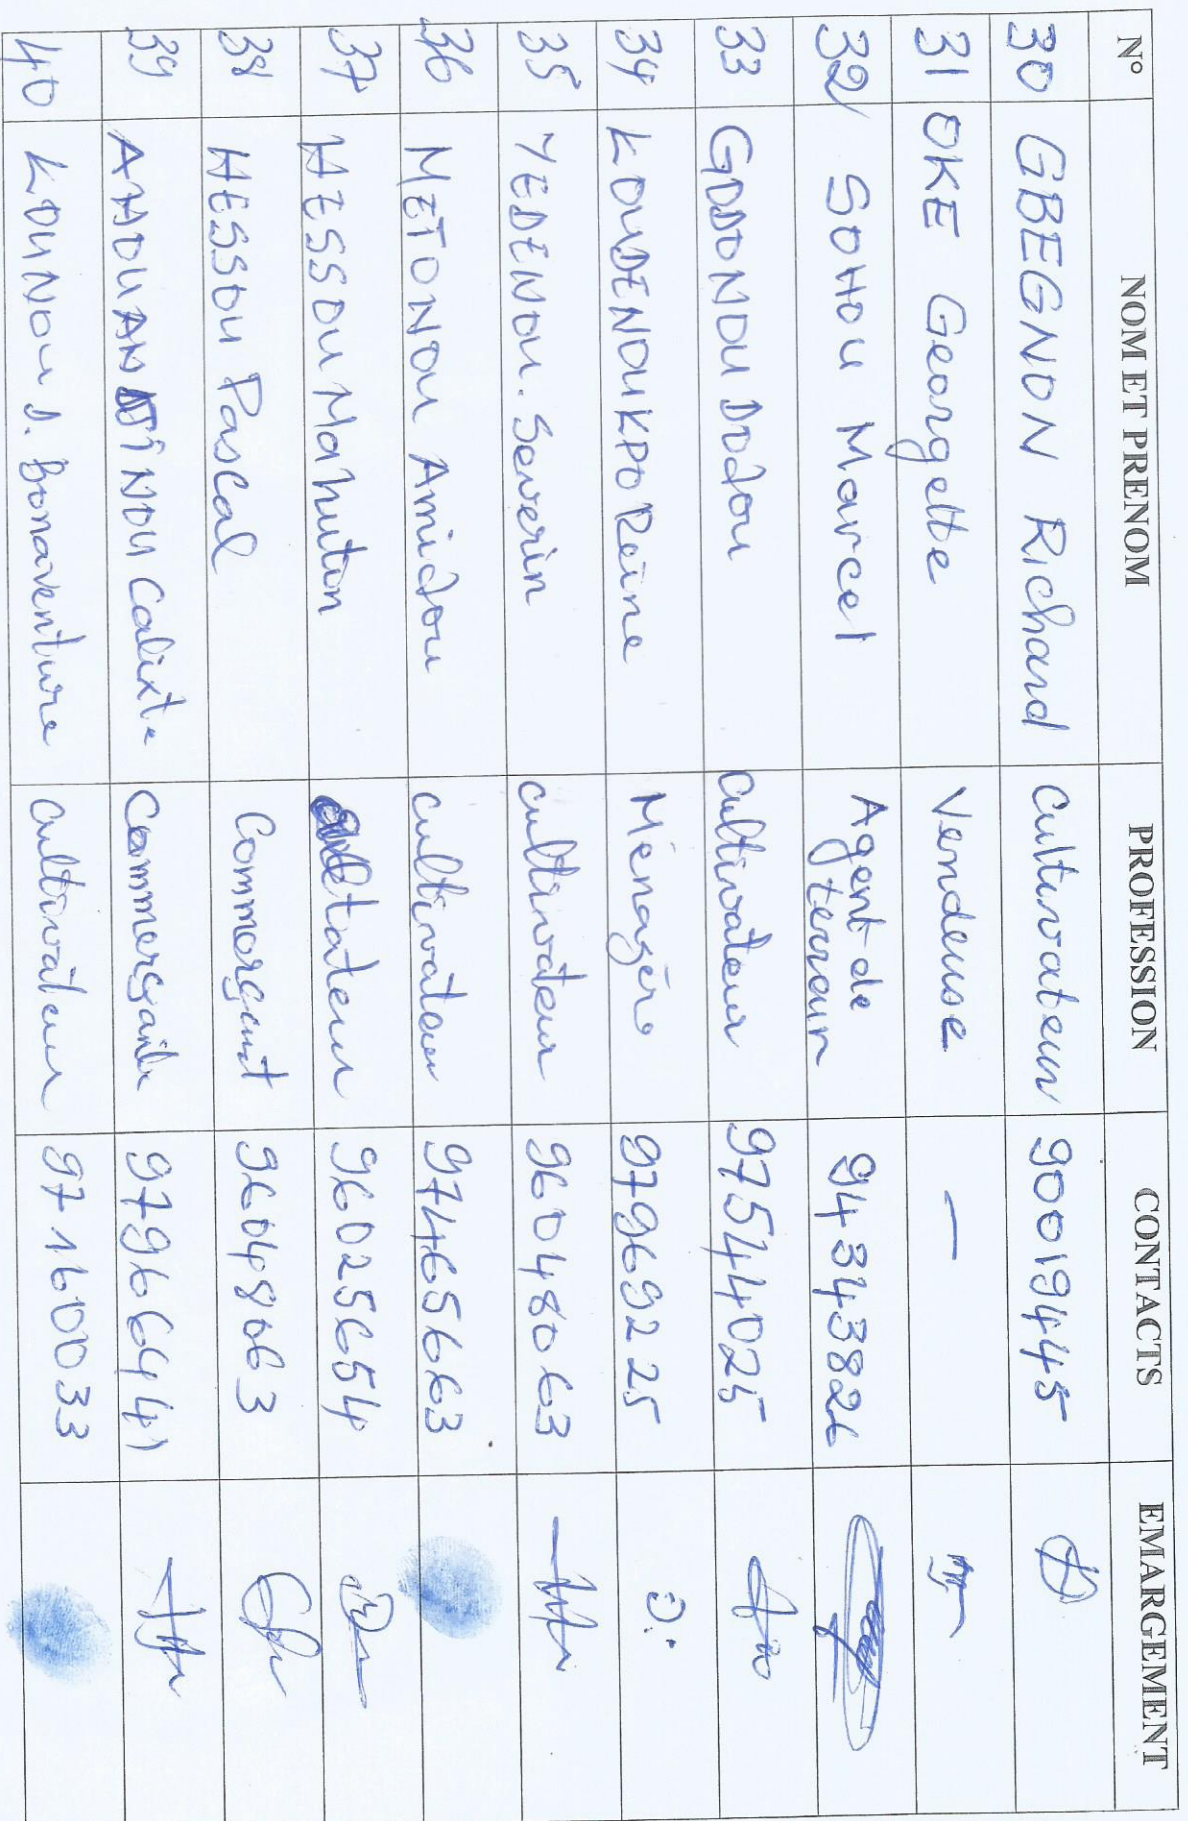 N° NOM ET PRENOM PROFESSION CONTACTS EMARGEMENT
30 GBEGNON Richard Cultivateur 90019445
31 OKE Georgette Vendeuse —
32 SOHOU Marcel Agent de terrain 94343826
33 GODONOU Dodou Cultivateur 97544025
34 KOUDENOUKPO Reine Ménagère 97969225
35 YEDENOU. Severin Cultivateur 96048063
36 METONOU Amidou Cultivateur 97465663
37 HESSOU Mahutin Cultivateur 96025654
38 HESSOU Pascal Commerçant 96048063
39 AHOUANDJINOU Calixte Commerçant 97966441
40 KOUNOU D. Bonaventure Cultivateur 97160033